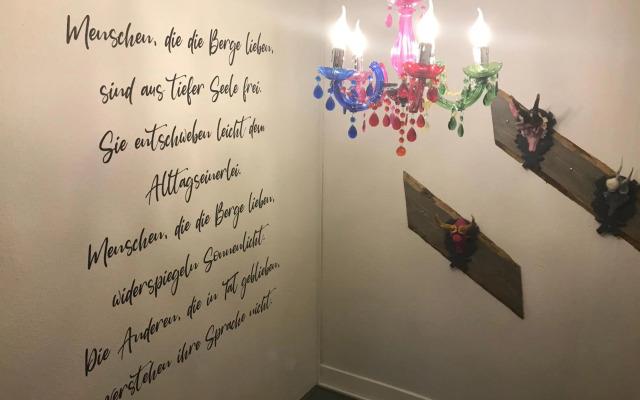 Menschen, die die Berge lieben,
sind aus tiefer Seele frei.
Sie entschweben leicht dem
Alltagseinerlei.
Menschen, die die Berge lieben,
widerspiegeln Sonnenlicht.
Die Anderen, die in Tal geblieben,
verstehen ihre Sprache nicht.